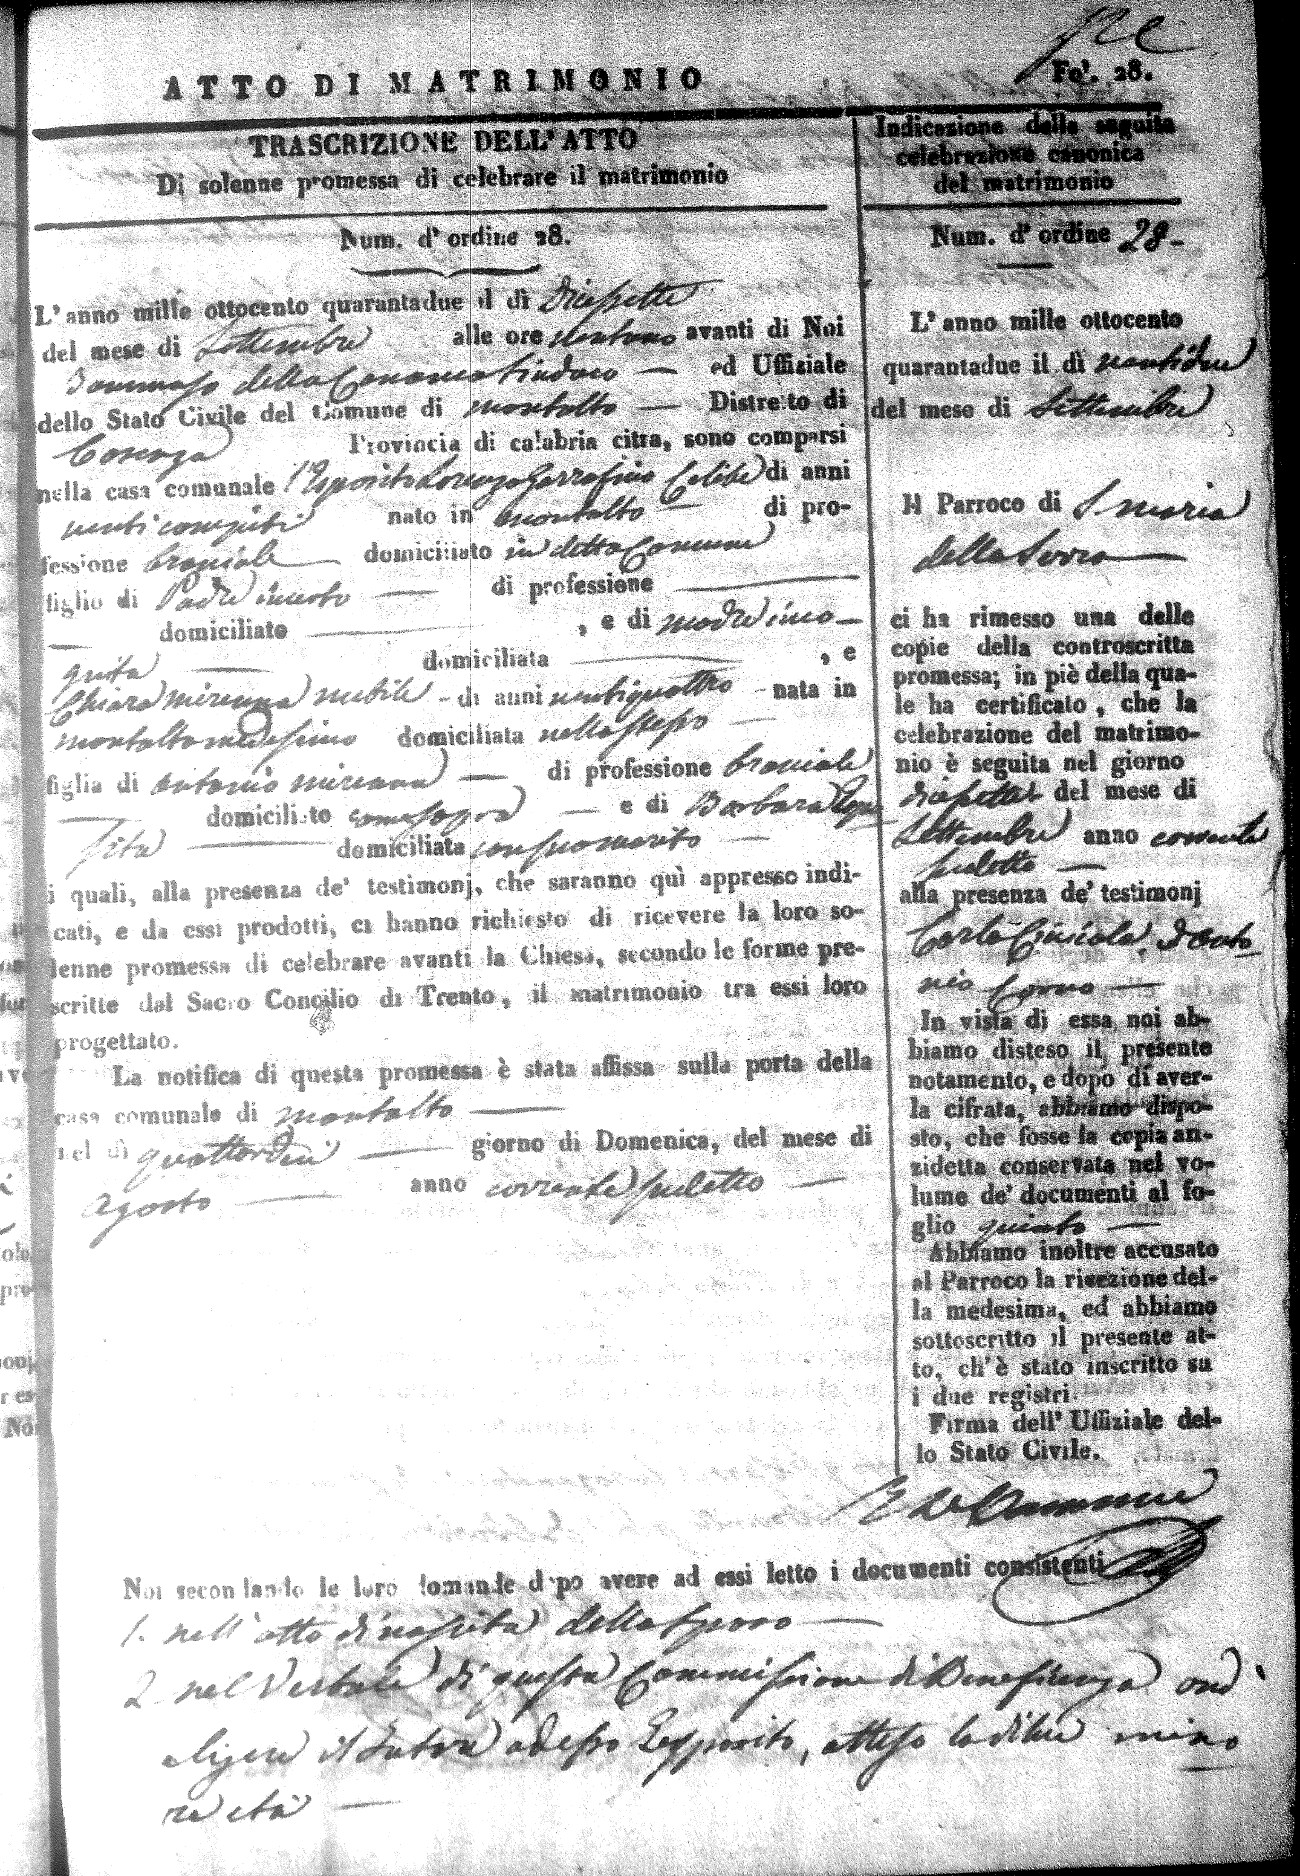 Fo'. 28.
ATTO DI MATRIMONIO
TRASCRIZIONE DELL'ATTO
Di solenne promessa di celebrare il matrimonio
Num. d'ordine 28.
L'anno mille ottocento quarantadue il dì diciassette
del mese di Settembre alle ore ventuno avanti di Noi
Tommaso della Sindaco — ed Uffiziale
dello Stato Civile del Comune di Montalto — Distretto di
Cosenza Provincia di calabria citra, sono comparsi
nella casa comunale l'Esposito Lorenzo Garrafino Celibe di anni
venti compiti nato in Montalto — di pro-
fessione bracciale — domiciliato in detto Comune
figlio di Padre incerto — di professione —
— domiciliato — , e di madre inco-
gnita — domiciliata — , e
Chiara Mirenna nubile - di anni ventiquattro - nata in
Montalto medesimo domiciliata nello stesso —
figlia di Antonio Mirenna — di professione bracciale
— domiciliato come sopra — e di Barbara Espo-
sita — domiciliata con suo marito —
i quali, alla presenza de' testimonj, che saranno quì appresso indi-
cati, e da essi prodotti, ci hanno richiesto di ricevere la loro so-
lenne promessa di celebrare avanti la Chiesa, secondo le forme pre-
scritte dal Sacro Concilio di Trento, il matrimonio tra essi loro
progettato.
La notifica di questa promessa è stata affissa sulla porta della
casa comunale di Montalto —
nel dì quattordici — giorno di Domenica, del mese di
Agosto — anno corrente suletto —
Indicazione della seguita
celebrazione canonica
del matrimonio
Num. d'ordine 28-
L'anno mille ottocento
quarantadue il dì ventidue
del mese di Settembre
Il Parroco di S Maria
della Serra —
ci ha rimesso una delle
copie della controscritta
promessa; in piè della qua-
le ha certificato, che la
celebrazione del matrimo-
nio è seguita nel giorno
diciassette del mese di
Settembre anno corrente
suletto —
alla presenza de' testimonj
Carlo d Anto-
nio —
In vista di essa noi ab-
biamo disteso il presente
notamento, e dopo di aver-
la cifrata, abbiamo dispo-
sto, che fosse la copia an-
zidetta conservata nel vo-
lume de' documenti al fo-
glio quinto —
Abbiamo inoltre accusato
al Parroco la ricezione del-
la medesima, ed abbiamo
sottoscritto il presente at-
to, ch'è stato inscritto su
i due registri.
Firma dell'Uffiziale del-
lo Stato Civile.
Noi secondando le loro domande dopo avere ad essi letto i documenti consistenti
1. nell'atto di nascita dello sposo —
2 nel Verbale di questa Commissione di Beneficenza ond'
eligere il Tutore ad esso Esposito, atteso la di lui mino
re età —